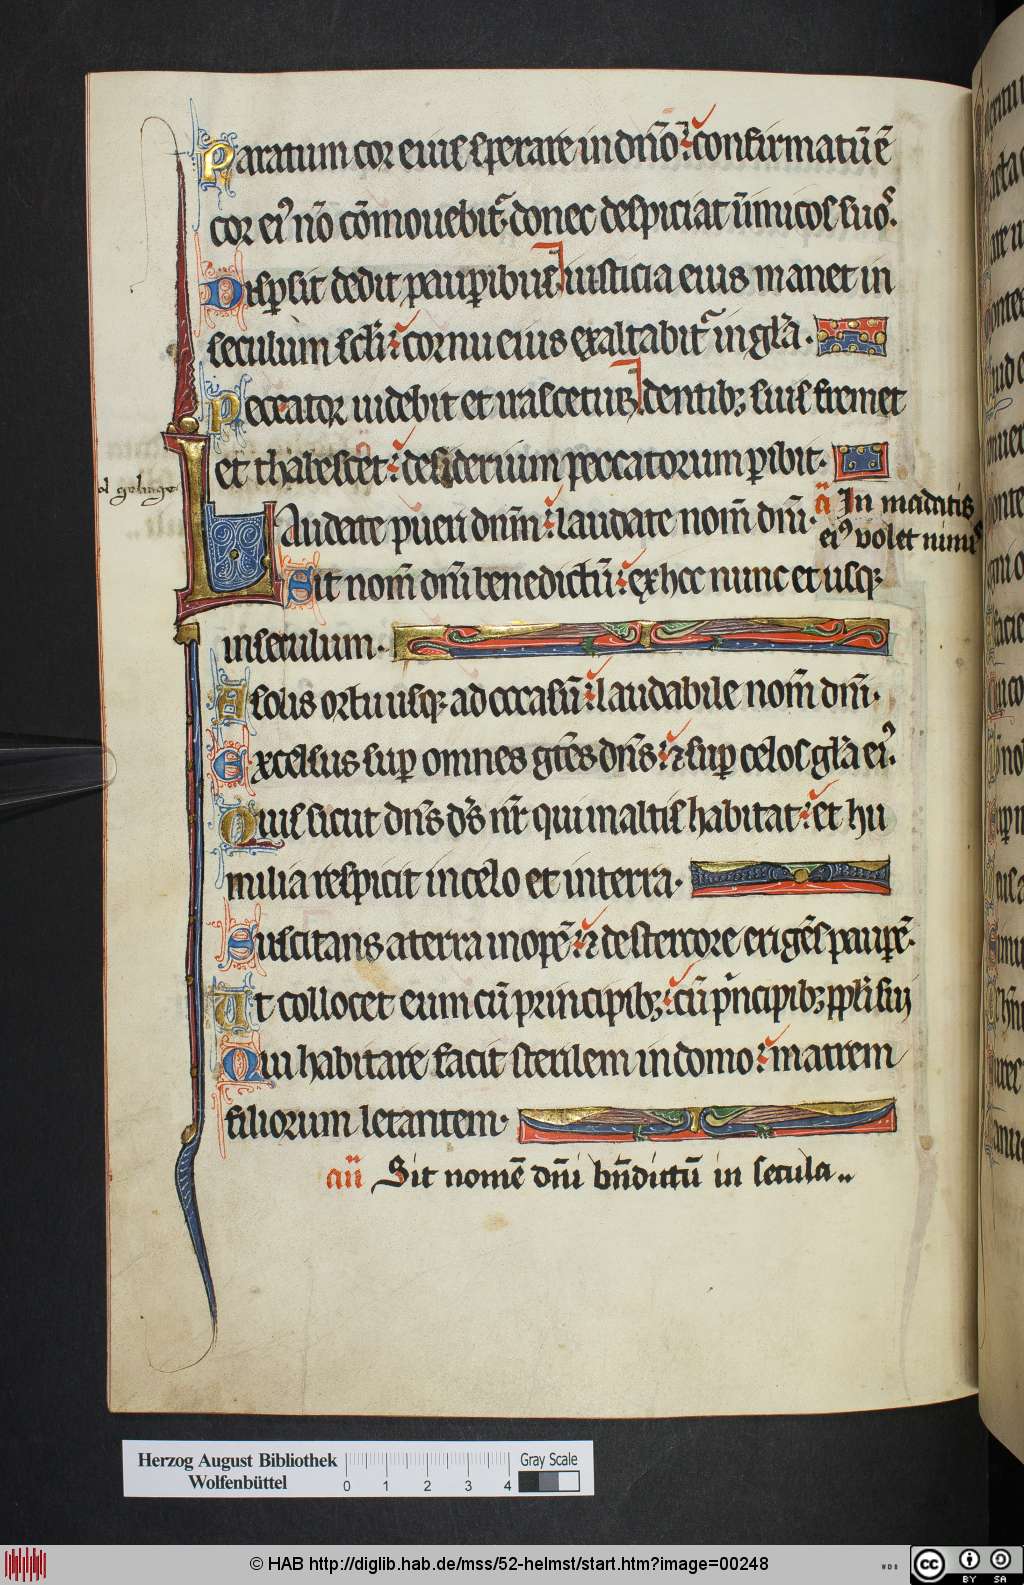 Paratum cor eius sperare in dn̄o : confirmatū ē
cor ei⁹ nō cōmouebit᷑ donec despiciat inimicos suos.
Disp̱sit dedit paup̱ibus iusticia eius manet in
seculum sc̄li : cornu eius exaltabit᷑ in gl̄a .
Peccator uidebit et irascetur dentibꝫ suis fremet
et thabescet : desiderium peccatorum ꝑibit.
Laudate pueri dn̄m : laudate nom̄ dn̄i .
a᷑ In mādatis
ei⁹ volet nimis
Sit nom̄ dn̄i benedictū : ex hoc nunc et usqꝫ
in seculum .
A solis ortu usqꝫ ad occasū : laudabile nom̄ dn̄i .
Excelsus suꝑ omnes gēs dn̄s : ⁊ suꝑ celos gl̄a ei⁹.
Quis sicut dn̄s d̄s nr̄ qui in altis habitat : et hu
milia respicit in celo et in terra .
Suscitans a terra inopē : ⁊ de stercore erigēs pauꝑē .
Ut collocet eum cū principibꝫ : cū pⁱncipibꝫ ppl̄i sui
Qui habitare facit sterilem in domo : matrem
filiorum letantem .
añ Sit nomē dn̄i bn̄dictū in secula ..
Herzog August Bibliothek
Wolfenbüttel
0 1 2 3 4
Gray Scale
© HAB http://diglib.hab.de/mss/52-helmst/start.htm?image=00248
WDB
cc BY SA